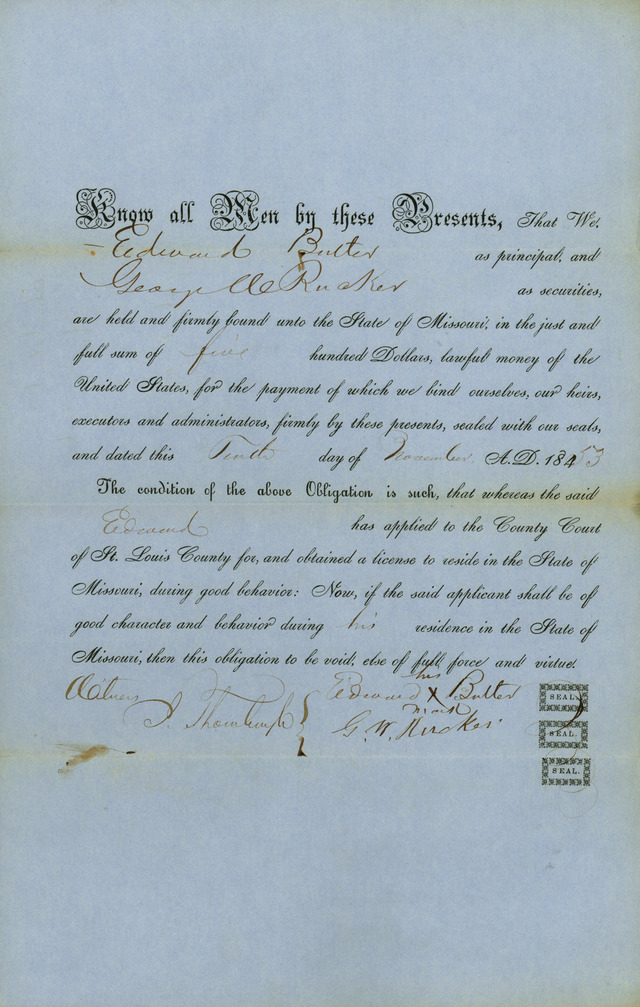 Know all Men by these Presents, That We,
Edward Butler as principal, and
George W Rucker as securities,
are held and firmly bound unto the State of Missouri, in the just and
full sum of five hundred Dollars, lawful money of the
United States, for the payment of which we bind ourselves, our heirs,
executors and administrators, firmly by these presents, sealed with our seals,
and dated this Tenth day of November A.D. 18453
The condition of the above Obligation is such, that whereas the said
Edward has applied to the County Court
of St. Louis County for, and obtained a license to reside in the State of
Missouri, during good behavior: Now, if the said applicant shall be of
good character and behavior during his residence in the State of
Missouri, then this obligation to be void, else of full force and virtue.
his
Witness Edward X Butler SEAL.
mark
J. Thornburgh G. W. Rucker SEAL.
SEAL.